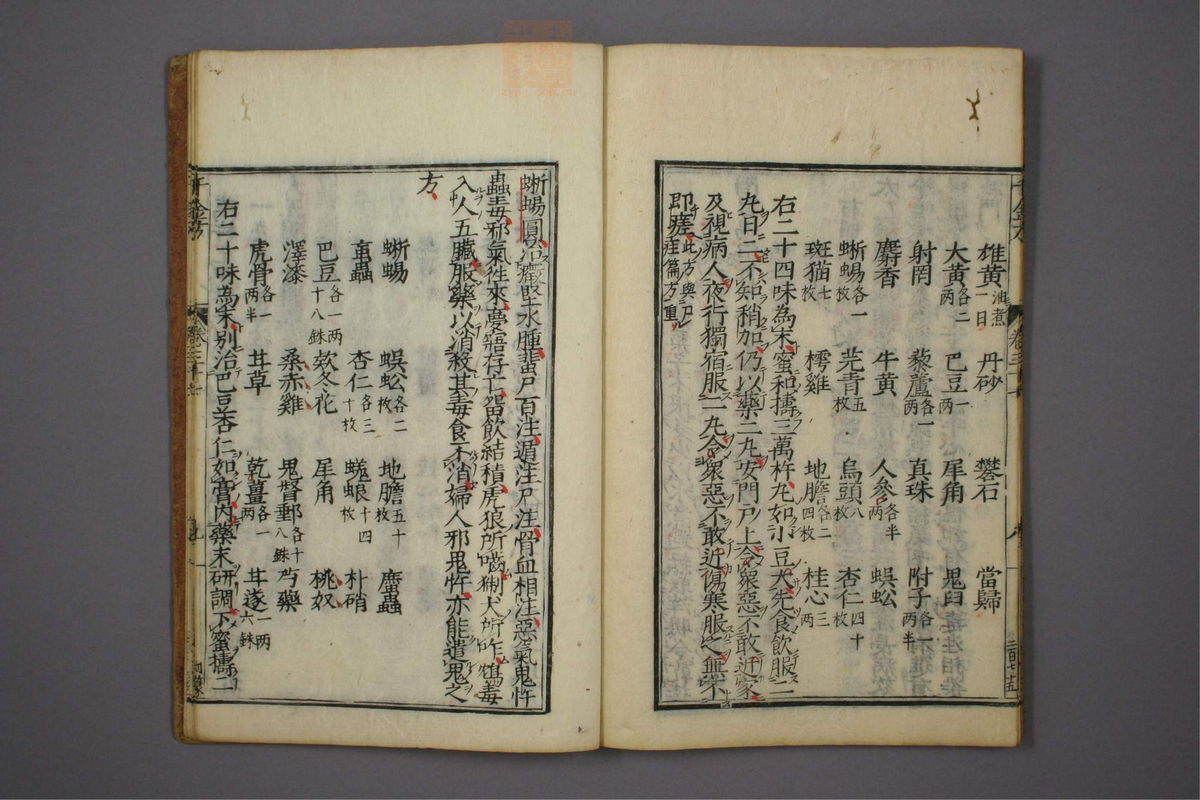 雄黄油煮一日 丹砂 礬石 當歸
大黄各二两 巴豆一两 犀角 鬼臼
射罔 藜蘆各一两 真珠 附子各一两半
麝香 牛黄 人參各半两 蜈蚣
蜥蜴各一枚 芫青五枚 烏頭八枚 杏仁四十枚
斑猫七枚 樗雞 地膽各二四枚 桂心三两
右二十四味為末蜜和擣三萬杵丸如小豆大先食飲服二
丸日二不知稍加仍以藥二丸安門戸上令衆惡不敢近家
及視病人夜行獨宿服一丸令衆惡不敢近傷寒服之無不
即瘥此方與尸疰篇方重
蜥蜴圓治癥堅水腫蜚尸百注遁注尸注骨血相注惡氣鬼忤
蟲毒邪氣往來夢寤存亡留飲結積虎狼所嚙猘犬所咋鴆毒
入人五臟服藥以消殺其毒食不消婦人邪鬼忤亦能遣鬼之
方
蜥蜴 蜈蚣各二枚 地膽五十枚 䗪蟲
蜚蠊 杏仁各三十枚 蜣蜋十四枚 朴硝
巴豆各一两十八銖 欵冬花 犀角 桃奴
澤漆 桑赤雞 鬼督郵各十八銖 芍藥
虎骨各一两半 甘草 乾薑各一两 甘遂一两六銖
右二十味為末別治巴豆杏仁如膏内藥末研調下蜜擣二